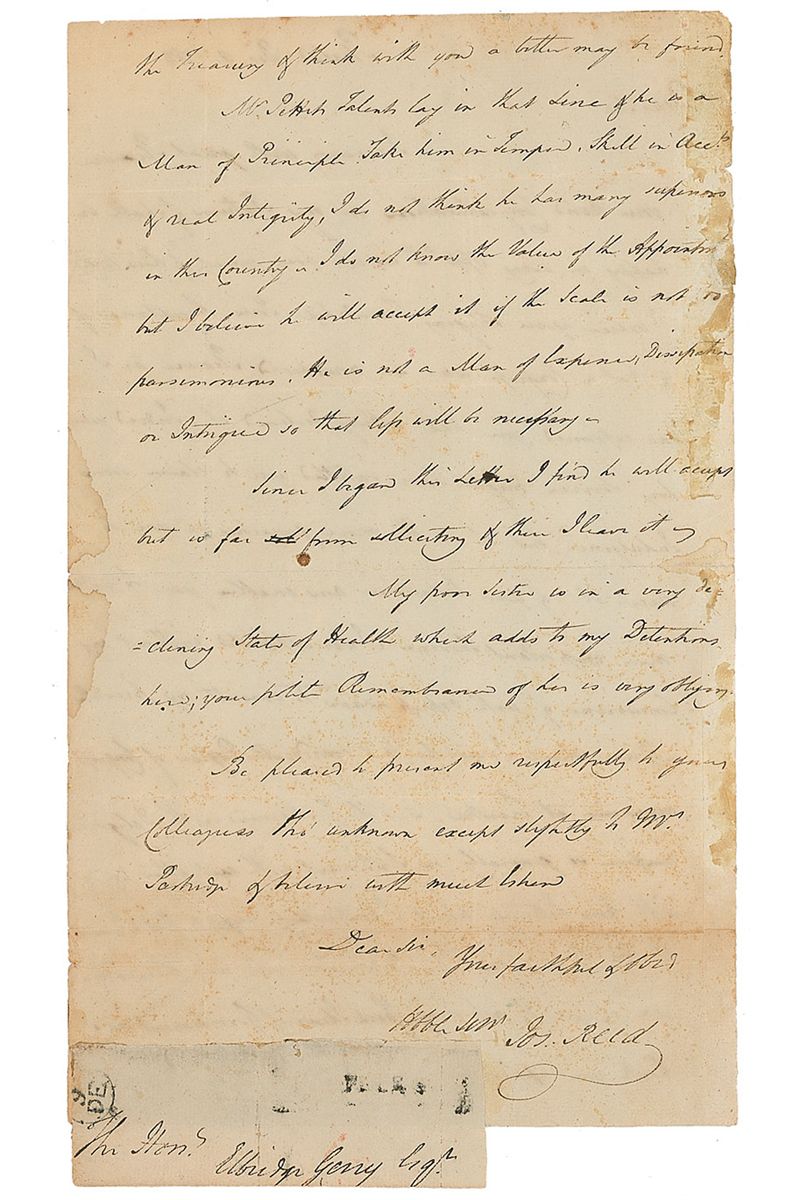 the Treasury & think with you a better may be found.
Mr. Pettits Talents lay in that Line & he is a
Man of Principle. Take him in Temper, Skill in Acc.ts
& real Integrity, I do not think he has many superiors
in this Country. I do not know the Value of the Appointm.t
but I believe he will accept it if the Scale is not so
parsimonious. He is not a Man of Expence, Dissipation
or Intrigue so that less will be necessary.
Since I began this Letter I find he will accept
but is far from solliciting & there I leave it
My poor Sister is in a very de=
=clining State of Health which adds to my Detentions
here; your polite Remembrance of her is very obliging.
Be pleased to present me respectfully to your
Colleagues tho' unknown except slightly to Mr.
Partridge & believe with much Esteem
Dear Sir,
Your faithful & Obed
Hbble Serv.t
Jos. Reed
9
DE
FREE
The Hon.
Elbridge Gerry Esq.r